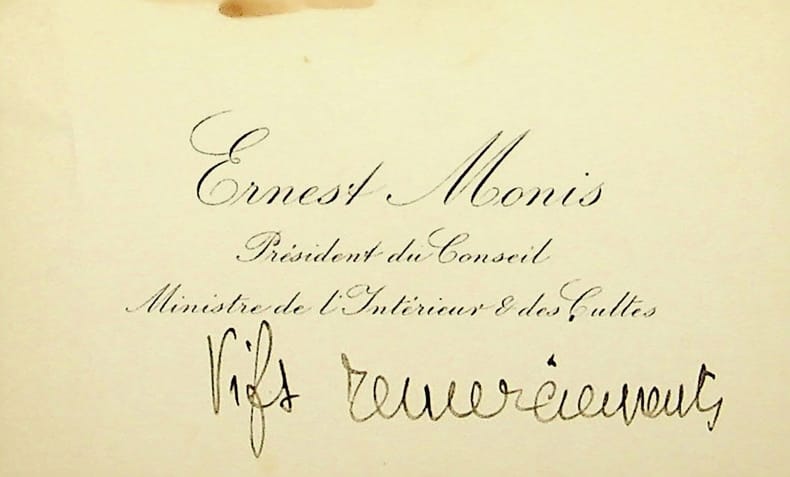 Ernest Monis
Président du Conseil
Ministre de l'Intérieur & des Cultes
Vifs remerciements